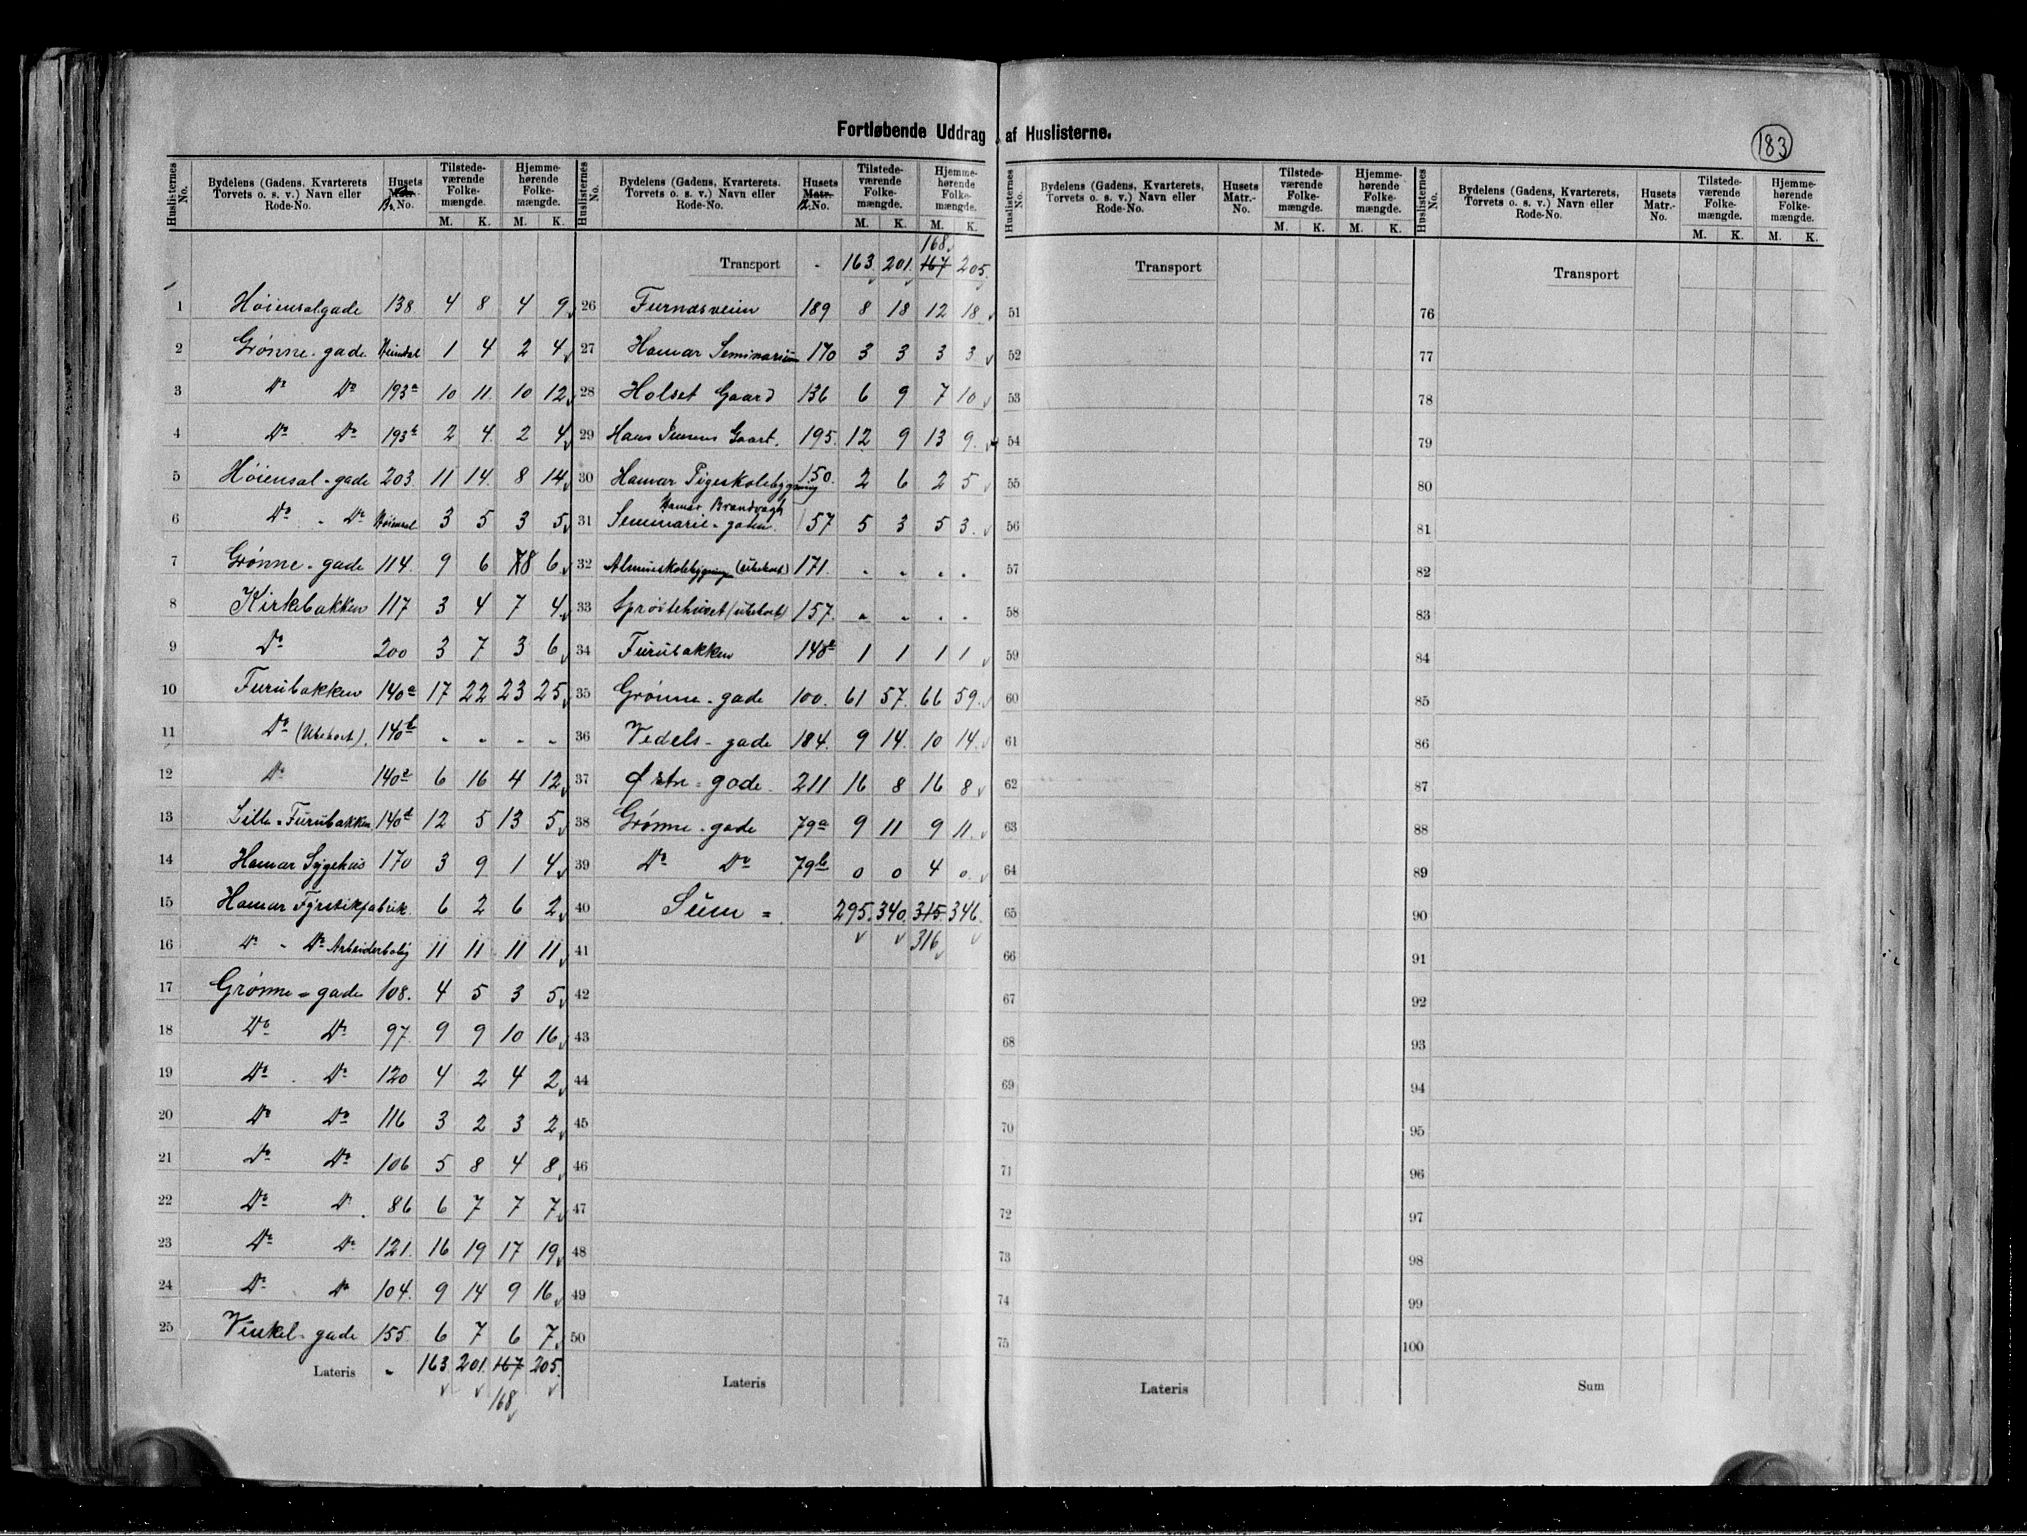 Fortløbende Uddrag af Huslisterne.
183
Huslisternes No. | Bydelens (Gadens, Kvarterets Torvets o. s. v.) Navn eller Rode-No. | Husets Matr. Br. No. | Tilstedeværende Folkemængde. M. K. | Hjemmehørende Folkemængde. M. K.
1 Høiensalgade 138 4 8 4 9
2 Grønne-gade Heimdal 1 4 2 4
3 Do Do 193a 10 11 10 12
4 Do Do 193b 2 4 2 4
5 Høiensal-gade 203 11 14 8 14
6 Do - Do Høiensal 3 5 3 5
7 Grønne-gade 114 9 6 8 6
8 Kirkebakken 117 3 4 7 4
9 Do 200 3 7 3 6
10 Furubakken 140a 17 22 23 25
11 Do (Ubeboet) 140b - - - -
12 Do 140c 6 16 4 12
13 Lille-Furubakken 140d 12 5 13 5
14 Hamar Sygehus 170 3 9 1 4
15 Hamar Fyrstikfabrik 6 2 6 2
16 Do - Do Arbeiderbolig 11 11 11 11
17 Grønne-gade 108 4 5 3 5
18 Do Do 97 9 9 10 16
19 Do Do 120 4 2 4 2
20 Do Do 116 3 2 3 2
21 Do Do 106 5 8 4 8
22 Do Do 86 6 7 7 7
23 Do Do 121 16 19 17 19
24 Do Do 104 9 14 9 16
25 Vinkel-gade 155 6 7 6 7
Lateris - 163 201 167 205
168
Huslisternes No. | Bydelens (Gadens, Kvarterets, Torvets o. s. v.) Navn eller Rode-No. | Husets Matr. B. No. | Tilstedeværende Folkemængde. M. K. | Hjemmehørende Folkemængde. M. K.
168
Transport - 163 201 167 205
26 Furnæsveien 189 8 18 12 18
27 Hamar Seminarium 170 3 3 3 3
28 Holset Gaard 136 6 9 7 10
29 Hans Jensens Gaart 195 12 9 13 9
30 Hamar Pigeskolebygning 150 2 6 2 5
Hamar Brandvagt
31 Seminarie-gaten 157 5 3 5 3
32 Almueskolebygning (ubeboet) 171 - - - -
33 Sprøitehuset (ubeboet) 157 - - - -
34 Furubakken 140e 1 1 1 1
35 Grønne-gade 100 61 57 66 59
36 Vedels-gade 184 9 14 10 14
37 Østre-gade 211 16 8 16 8
38 Grønne-gade 79a 9 11 9 11
39 Do Do 79b 0 0 4 0
40 Sum = 295 340 315 346
316
41
42
43
44
45
46
47
48
49
50
Lateris
Huslisternes No. | Bydelens (Gadens, Kvarterets, Torvets o. s. v.) Navn eller Rode-No. | Husets Matr.-No. | Tilstedeværende Folkemængde. M. K. | Hjemmehørende Folkemængde. M. K.
Transport
51
52
53
54
55
56
57
58
59
60
61
62
63
64
65
66
67
68
69
70
71
72
73
74
75
Lateris
Huslisternes No. | Bydelens (Gadens, Kvarterets, Torvets o. s. v.) Navn eller Rode-No. | Husets Matr.-No. | Tilstedeværende Folkemængde. M. K. | Hjemmehørende Folkemængde. M. K.
Transport
76
77
78
79
80
81
82
83
84
85
86
87
88
89
90
91
92
93
94
95
96
97
98
99
100
Sum